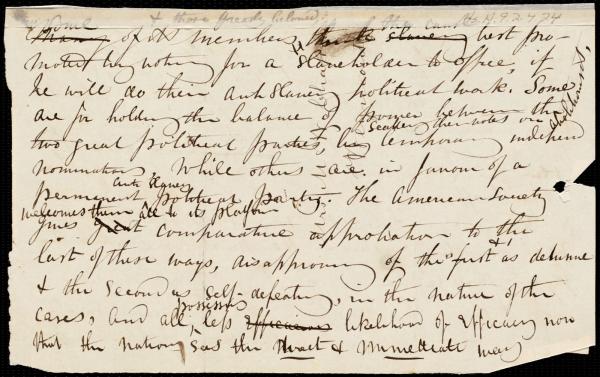 Some & those greatly beloved,
Many of its members, the slavery best pro-
moted by voting for a Slaveholder to office, if
he will do their anti Slavery political work. Some
are for holding the balance of power between the
two great political parties, by Scattering their votes or temporary independ
nominations, While others are in favour of a
permanent Anti Slavery political party. The American Society
welcomes them all to its platform
gives great comparative approbation to the
last of these ways, disapproving of the first, as delusive
& the second as self-defeating, in the nature of the
cases, and all possessing less efficacious likelihood of efficacy now
that the nation sees the direct & immediate way